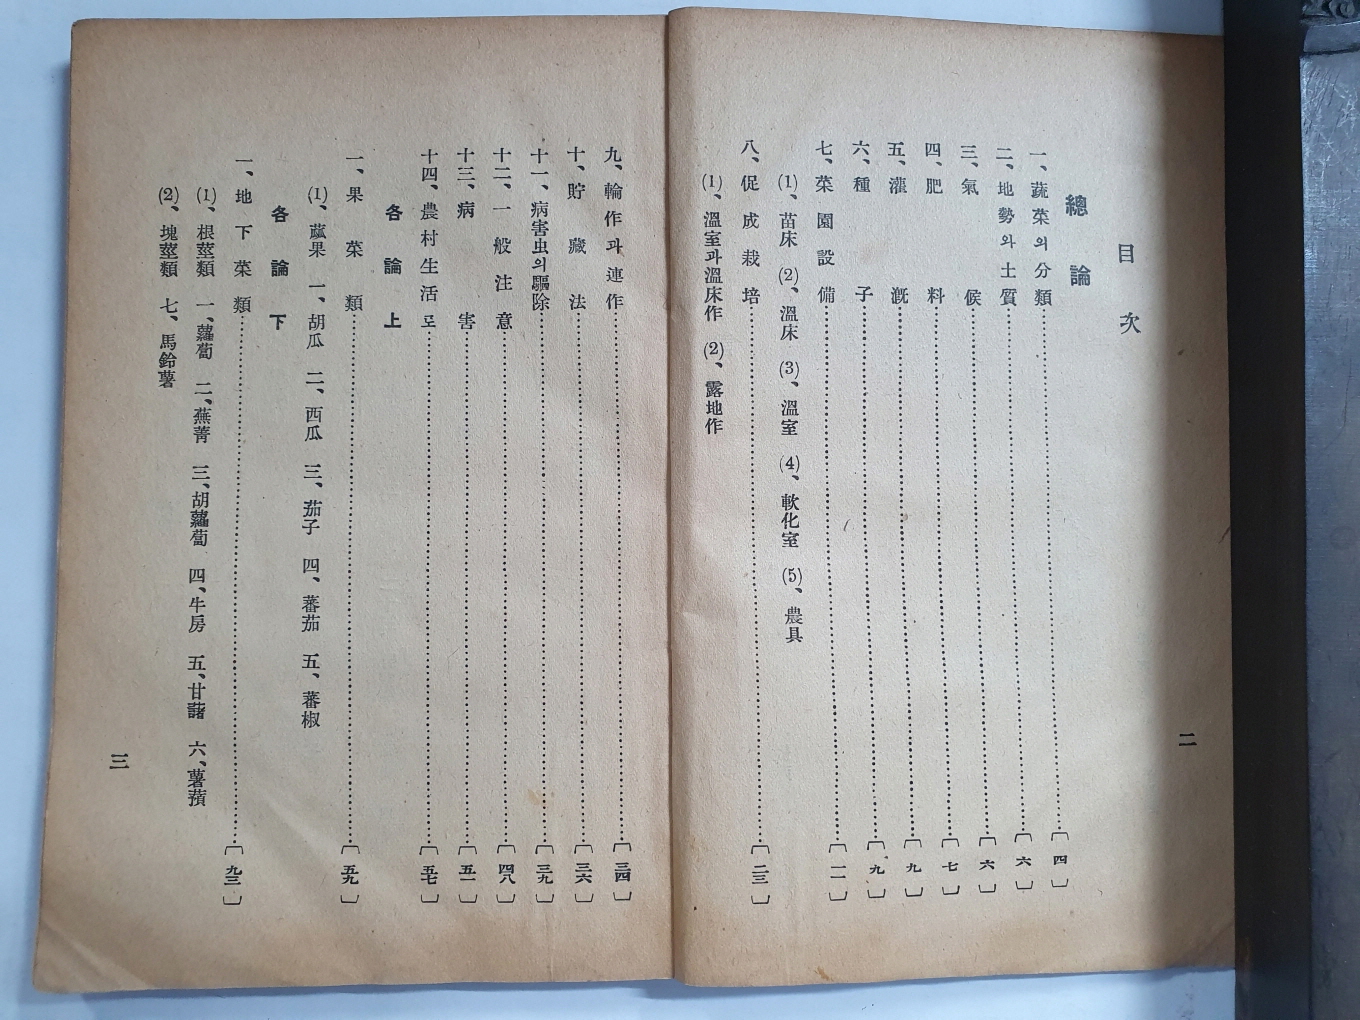 目次
總論
一、蔬菜의分類……〔四〕
二、地勢와土質……〔六〕
三、氣候……〔六〕
四、肥料……〔七〕
五、灌漑……〔九〕
六、種子……〔九〕
七、菜園設備……〔一一〕
(1)、苗床 (2)、溫床 (3)、溫室 (4)、軟化室 (5)、農具
八、促成栽培……〔二三〕
(1)、溫室과溫床作 (2)、露地作
二
九、輪作과連作……〔三四〕
十、貯藏法……〔三六〕
十一、病害虫의驅除……〔三九〕
十二、一般注意……〔四八〕
十三、病害……〔五一〕
十四、農村生活로……〔五七〕
各論上
一、果菜類……〔五九〕
(1)、蓏果 一、胡瓜 二、西瓜 三、茄子 四、蕃茄 五、蕃椒
各論下
一、地下菜類……〔九三〕
(1)、根莖類 一、蘿蔔 二、蕪菁 三、胡蘿蔔 四、牛房 五、甘藷 六、薯蕷
(2)、塊莖類 七、馬鈴薯
三